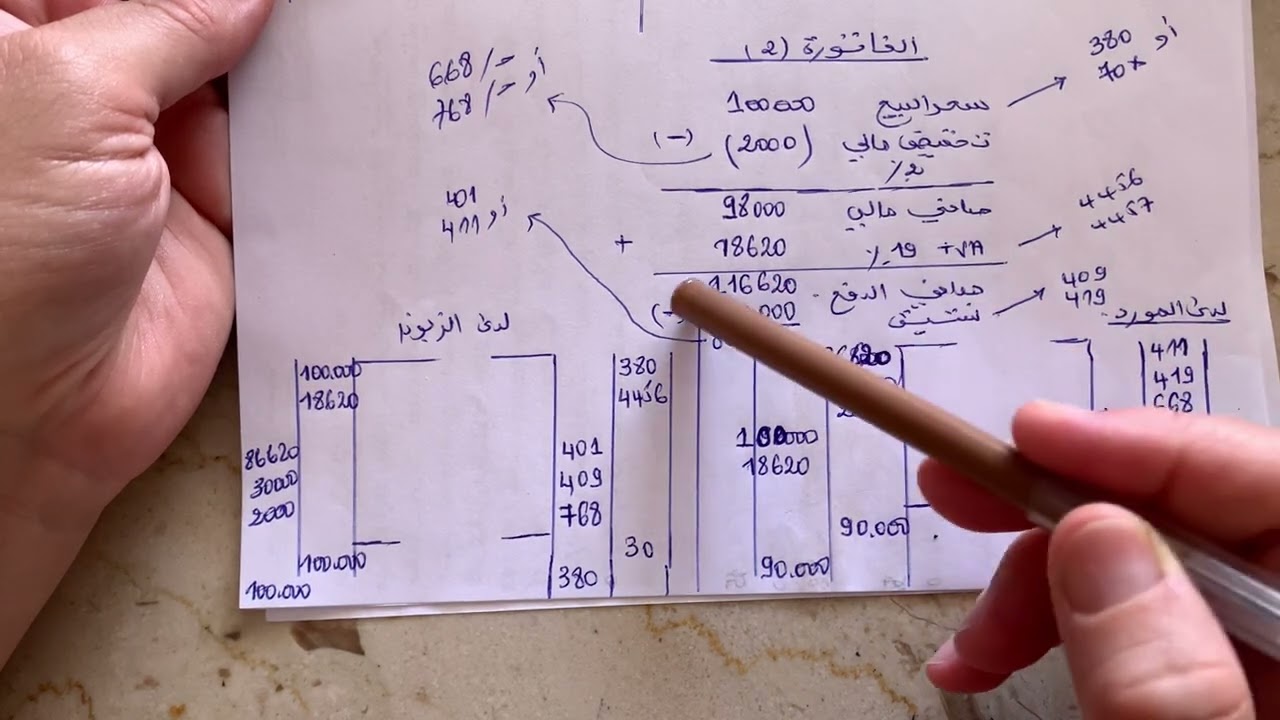 الفاتورة (2)
أو 668/ح
أو 768/ح
380 أو
70x
سعر البيع 100000
تخفيض مالي (2000) (-)
2%
صافي مالي 98000
TVA 19% 18620 +
4456
4457
صافي الدفع 116620
تسبيق 000 (-)
409
419
401
أو 411
لدى الزبون
لدى المورد:
380 100.000
4456 18620
401 86620
409 30000
768 2000
30 100.000
380 100.000
411
419
668
100000
18620
90.000
90.000